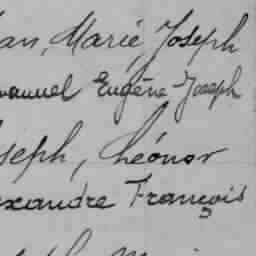 an, Marie, Joseph
manuel Eugène Joseph
seph, Léonor
exandre François